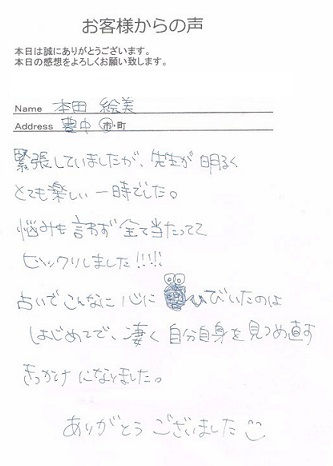 お客様からの声
本日は誠にありがとうございます。
本日の感想をよろしくお願い致します。
Name 本田 絵美
Address 豊中 市・町
緊張していましたが、先生が明るく
とても楽しい一時でした。
悩みも言わず全て当たってて
ビックリしました!!!!!
占いでこんなに心に ひびいたのは
はじめてで、凄く自分自身を見つめ直す
きっかけになりました。
ありがとうございました